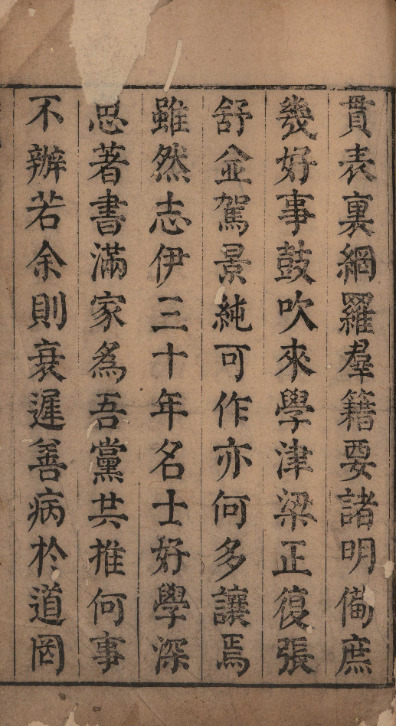 貫表裏網羅羣籍要諸明僃庶
幾好事鼓吹來學津梁正復張
舒竝駕景純可作亦何多讓焉
雖然志伊三十年名士好學深
思著書滿家為吾黨共推何事
不辦若余則衰遲善病於道罔